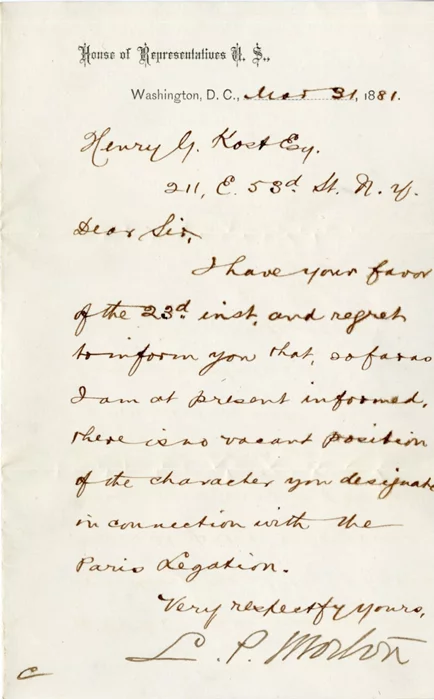 House of Representatives U. S.,
Washington, D. C., Mar 31, 1881.
Henry G. Kost Esq.
211, E. 53d St. N. Y.
Dear Sir,
I have your favor
of the 23d inst. and regret
to inform you that, so far as
I am at present informed,
there is no vacant position
of the character you designate
in connection with the
Paris Legation.
Very respectfy yours,
L. P. Morton
C